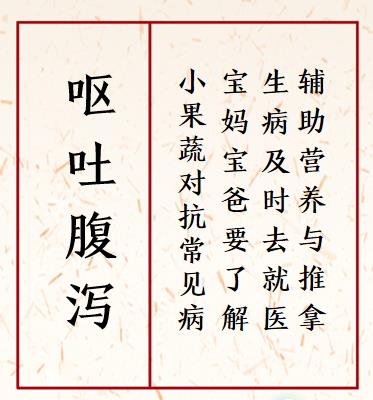 呕吐腹泻
小果蔬对抗常见病
宝妈宝爸要了解
生病及时去就医
辅助营养与推拿